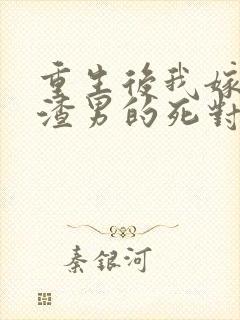 重生後我嫁
渣男的死對
秦銀河